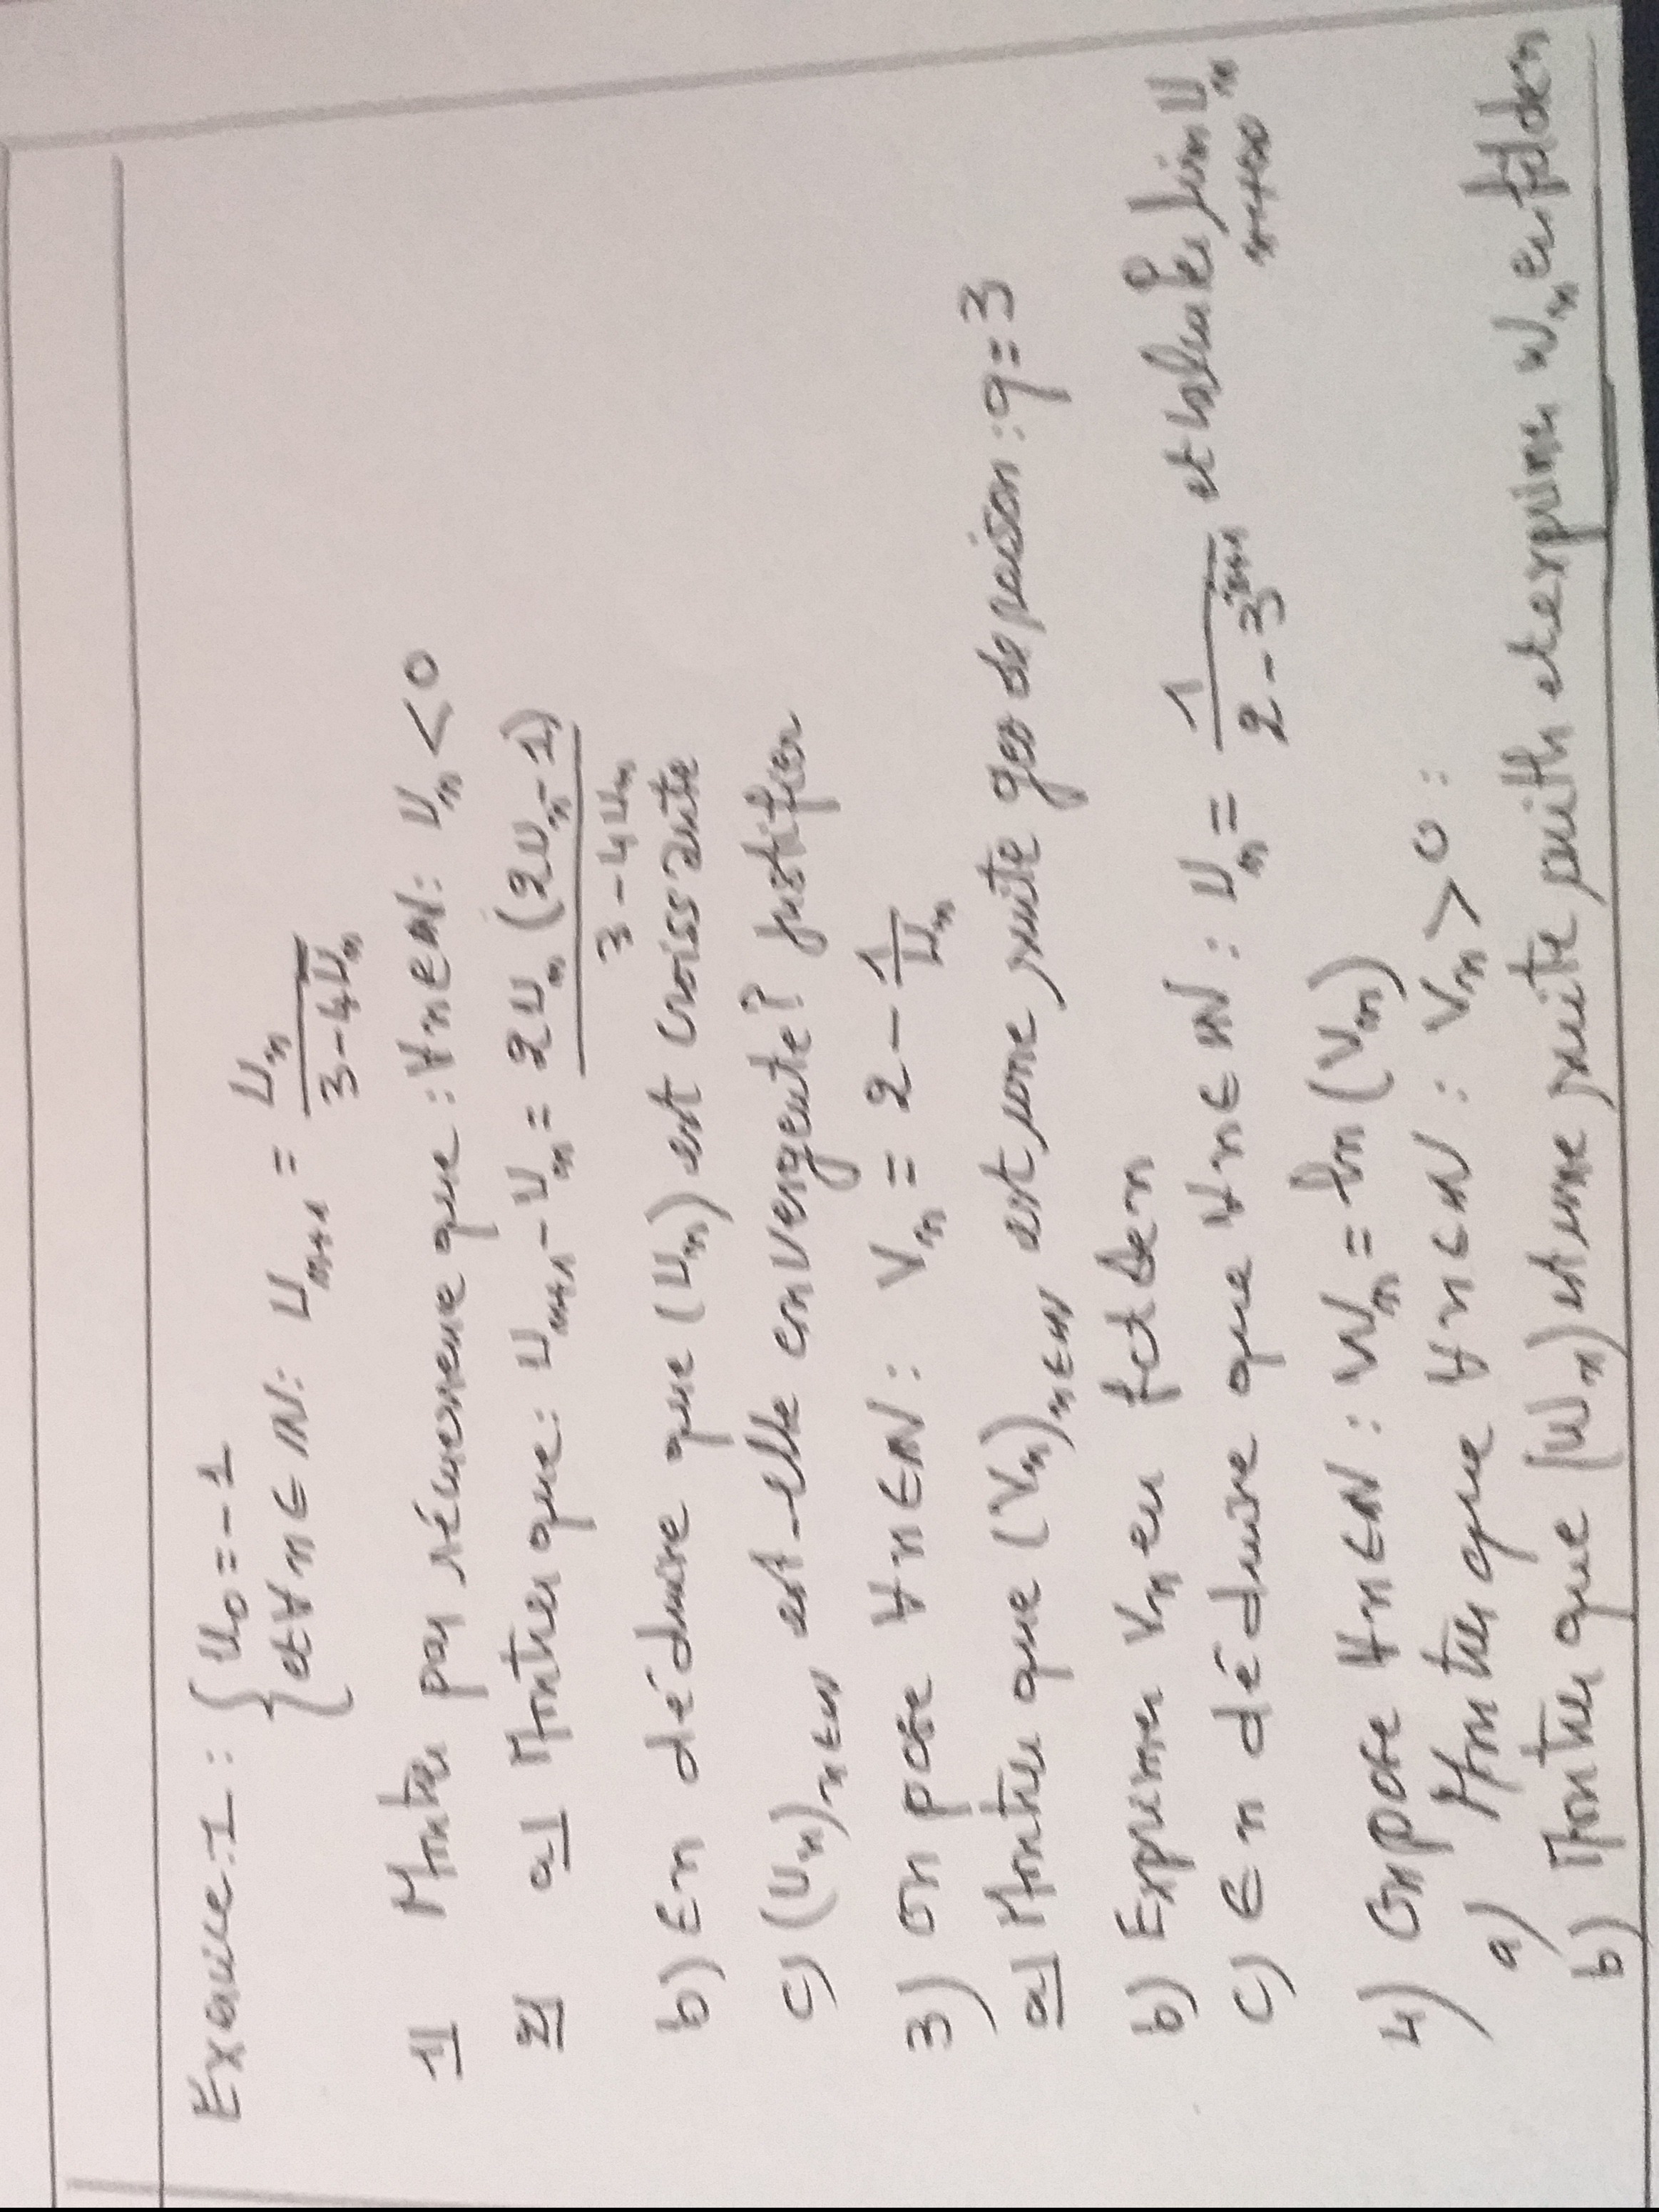 Exercice.1 : { U₀ = -1
{ et ∀ n ∈ IN : Uₙ₊₁ = Uₙ / (3 - 4Uₙ)
1) Montrer par récurrence que : ∀ n ∈ IN : Uₙ < 0
2) a) Montrer que : Uₙ₊₁ - Uₙ = 2Uₙ (2Uₙ - 1) / (3 - 4Uₙ)
b) En déduire que (Uₙ) est croissante
c) (Uₙ)ₙ∈IN est-elle convergente ? justifier
3) On pose ∀ n ∈ IN : Vₙ = 2 - 1/Uₙ
a) Montrer que (Vₙ)ₙ∈IN est une suite géo de raison : q = 3
b) Exprimer Vₙ en fct de n
c) En déduire que ∀ n ∈ IN : Uₙ = 1 / (2 - 3ⁿ⁺¹) et calculer lim Uₙ n→+∞
4) On pose ∀ n ∈ IN : Wₙ = ln(Vₙ)
a) Montrer que ∀ n ∈ IN : Vₙ > 0 :
b) Montrer que (Wₙ) est une suite arith et exprimer Wₙ en fct de n